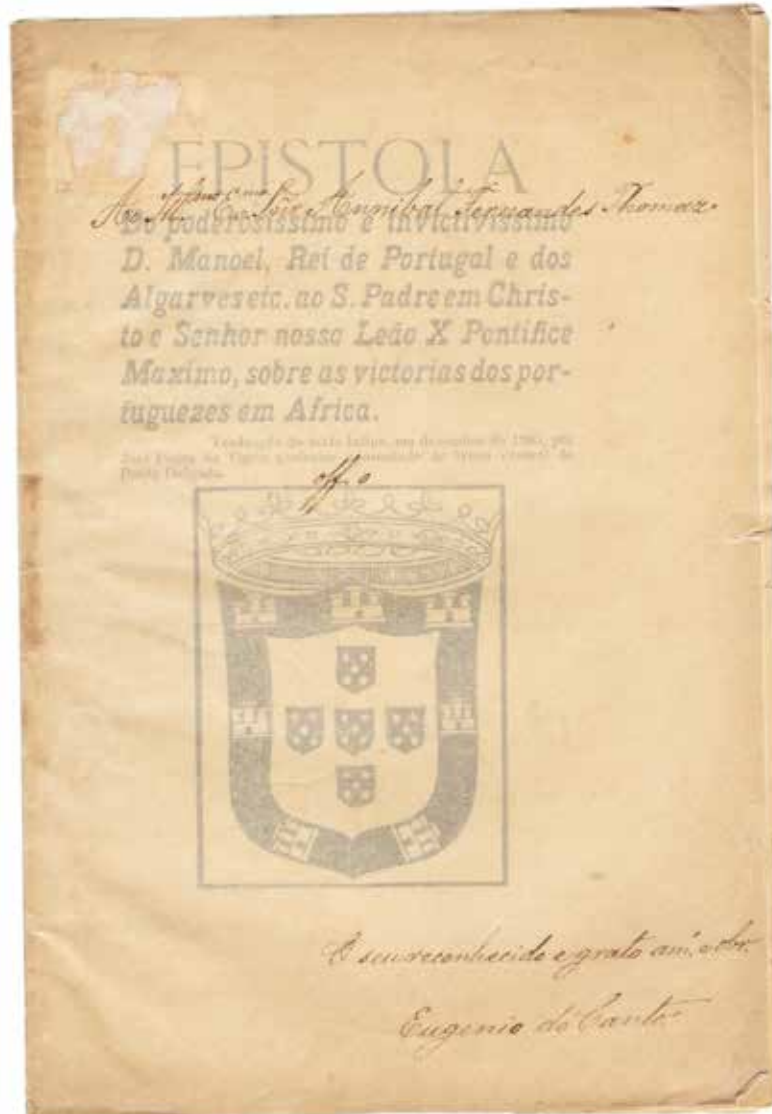 EPISTOLA
Ao Ill.mo Ex.mo Snr. Annibal Fernandes Thomaz
Do poderosissimo e invictivissimo
D. Manoel, Rei de Portugal e dos
Algarves etc. ao S. Padre em Chris-
to e Senhor nosso Leão X Pontifice
Maximo, sobre as victorias dos por-
tuguezes em Africa.
Traducção do texto latino, em dezembro de por
José do lyceu central de
Ponta Delgada.
off.e
O seu reconhecido e grato am.o e obr.
Eugenio do Canto